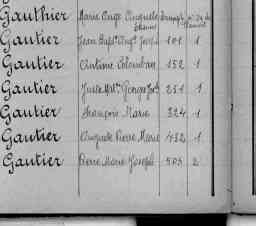 Gauthier Marie Ange Auguste
Gautier Jean Bapt. Aug. Joseph 101 1
Gautier Antoine Colomban 152 1
Gautier Jules 251 1
Gautier François Marie 324 1
Gautier Auguste Pierre Marie 432 1
Gautier Pierre Marie Joseph 503 2